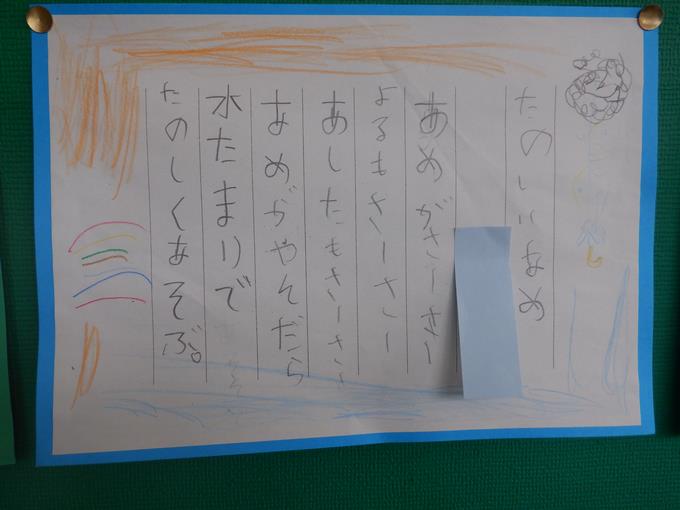 たのしいあめ
あめがさーさー
よるもさーさー
あしたもさーささ
あめがやんだら
水たまりで
たのしくあそぶ。